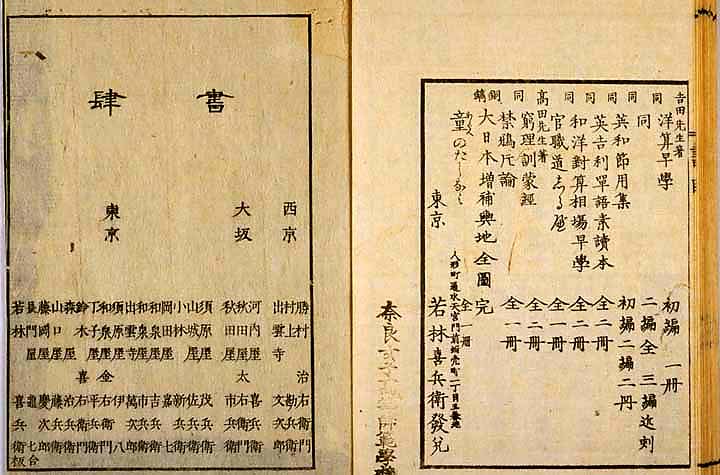 吉田先生著 洋算早學 初編 一冊
同 同 二編全 三編迄刻
同 英和節用集 初編二編二冊
同 英吉利單語素讀本 全二冊
同 和洋對算相場早學 全二冊
同 官職道しるべ 全一冊
高田先生著 窮理訓蒙經 全二冊
同 禁鴉片論 全一冊
銅鐫 大日本増補輿地全圖 完
童のたしなみ 全一冊
東京 人形町通水天宮門前 町二丁目五番地 若林喜兵衛發兌
奈良女子高等師範學校
書肆
西京 勝村治右衛門
村上勘兵衛
出雲寺文次郎
大坂 河内屋喜兵衛
秋田屋太右衛門
秋田屋市兵衛
東京 須原屋茂兵衛
山城屋佐兵衛
小林新兵衛
岡田屋嘉七
和泉屋吉兵衛
和泉屋市兵衛
出雲寺萬次郎
須原屋伊八
和泉屋金右衛門
丁子屋平兵衛
鈴木喜右衛門
森屋治兵衛
山口屋藤兵衛
藤岡屋慶次郎
長門屋龜七
若林喜兵衛